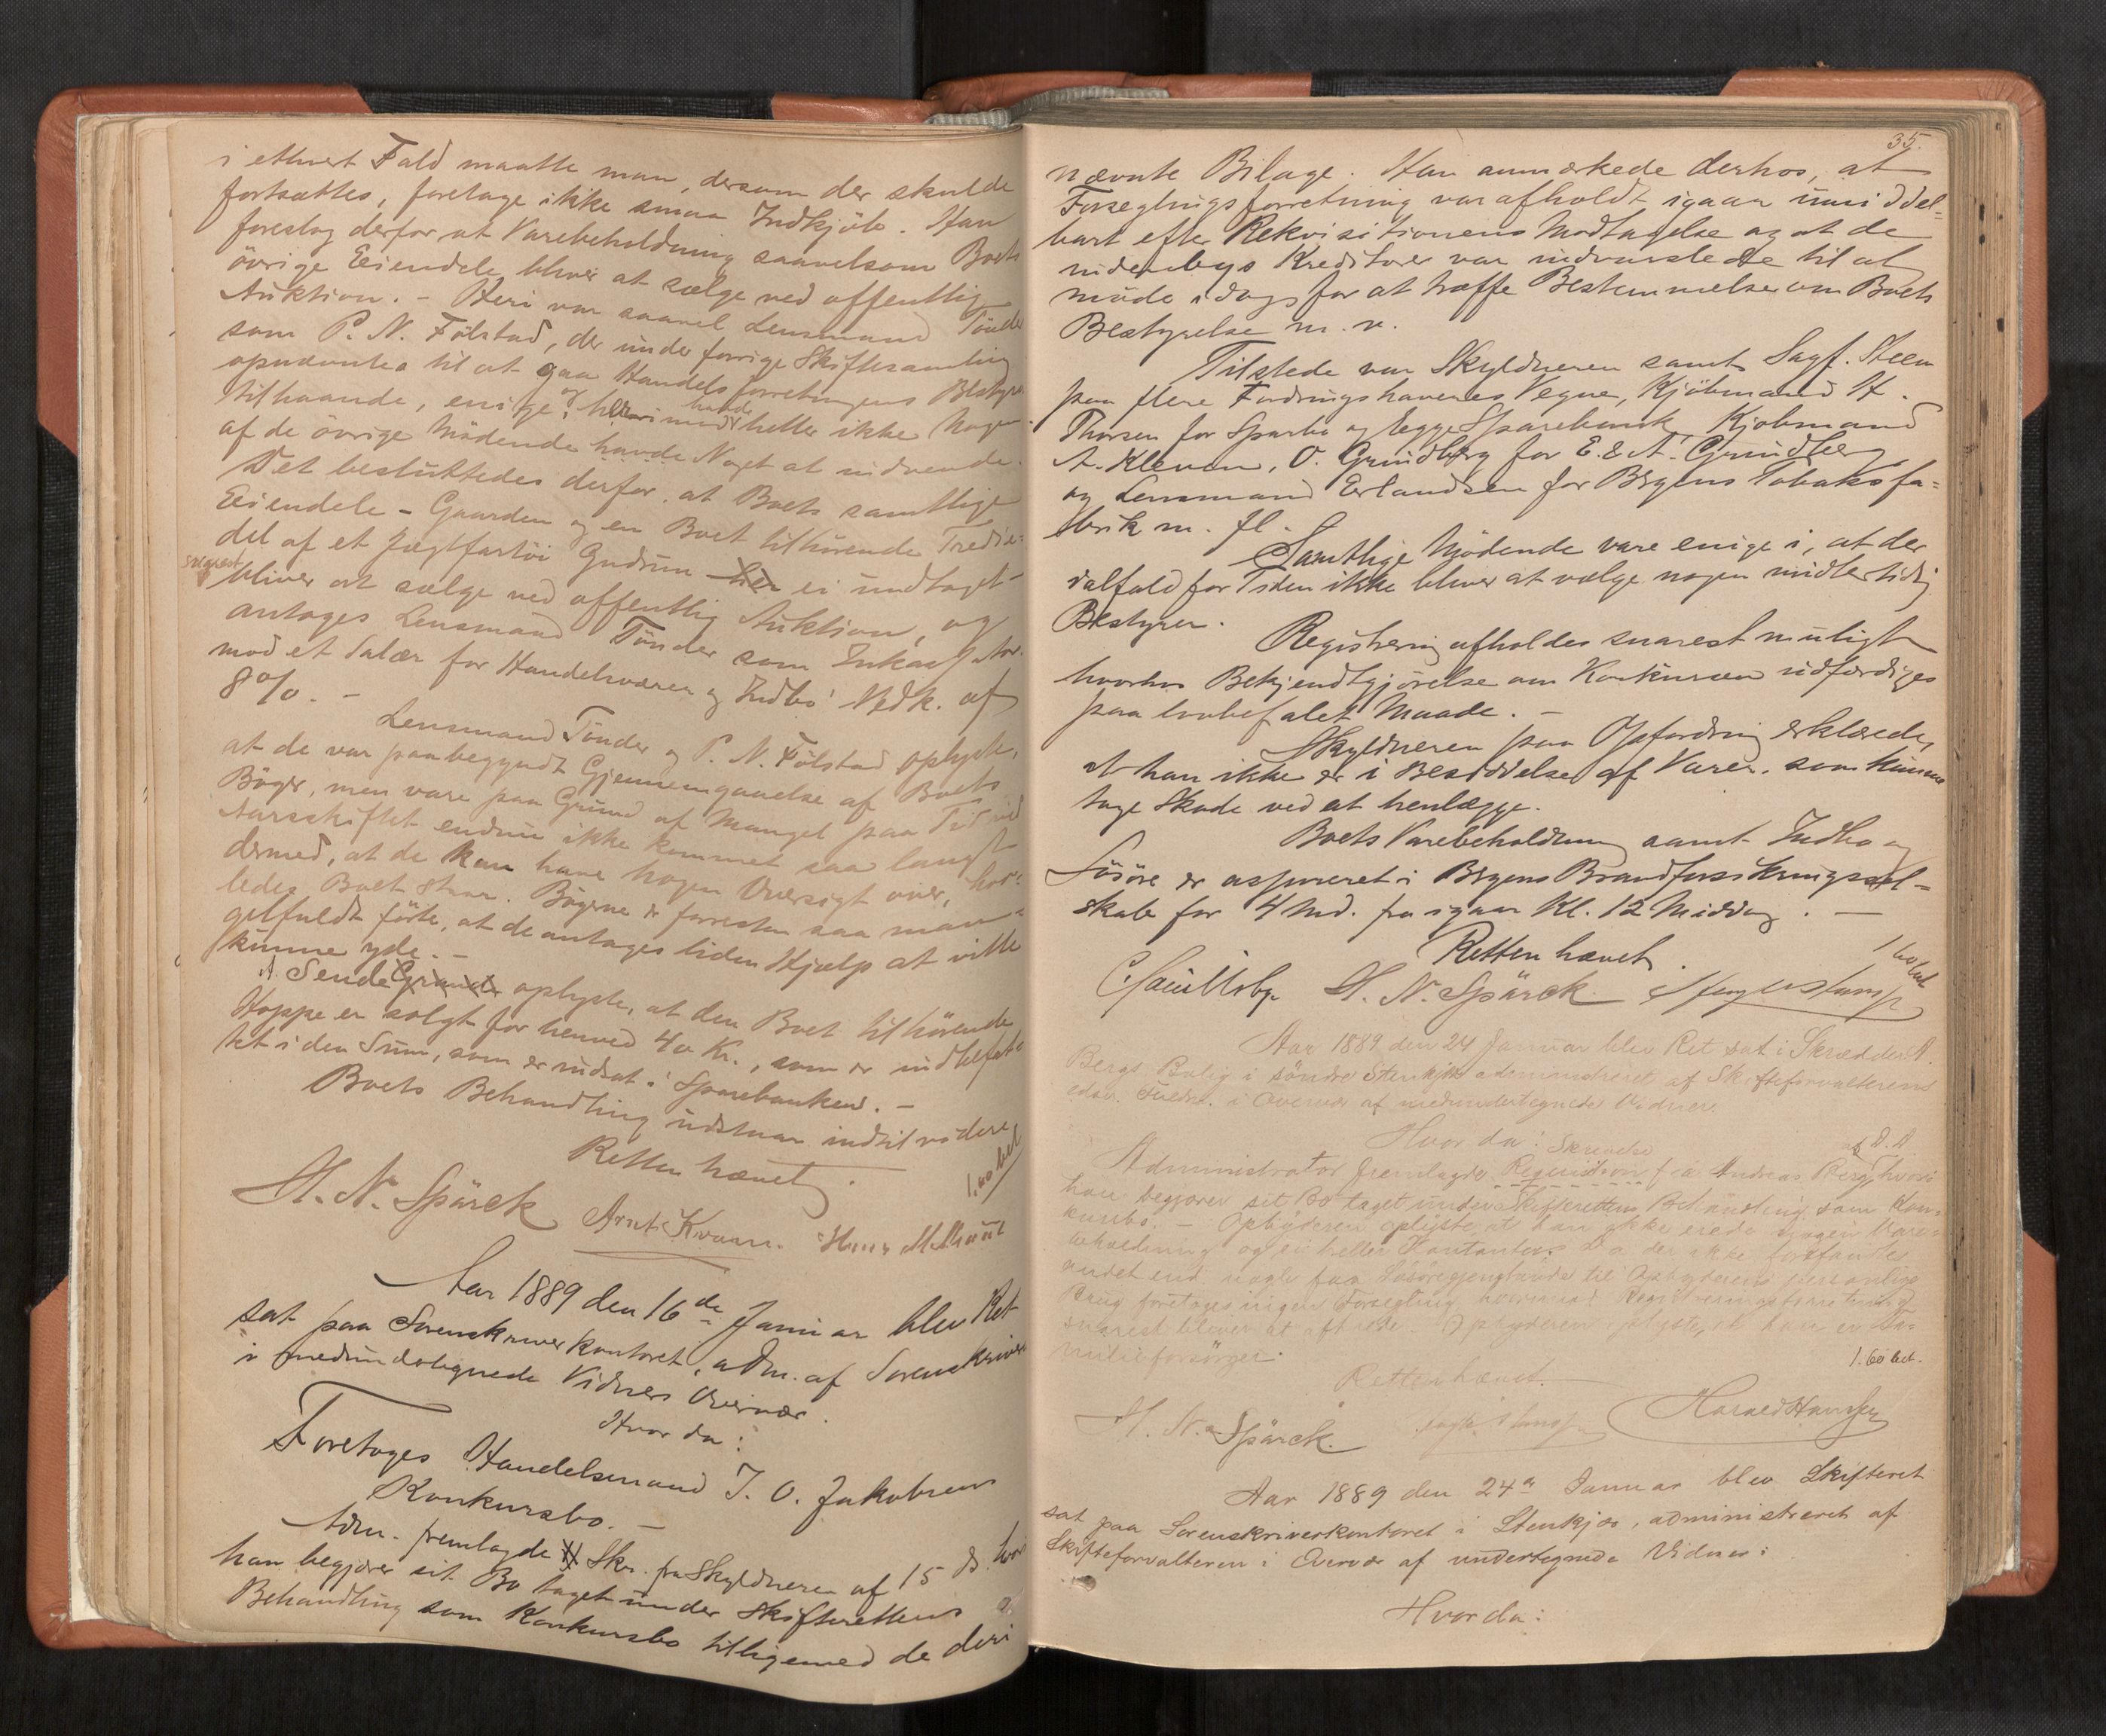 i ethvert Fald maatte man, dersom der skulde
fortsættes, foretage ikke smaa Indkjøb. Han
foreslog derfor at Varebeholdning saavelsom Boets
øvrige Eiendele bliver at sælge ved offentlig
Auktion. - Heri var saavel Lensmand Tønder
som P. N. Følstad, der under forrige Skiftesamling
opnævntes til at gaa Handelsforretningens Bestyrer
tilhaande, enige, og havde heller ikke Nogen
af de øvrige Mødende havde Noget at indvende.
Det besluttedes derfor, at Boets samtlige
Eiendele - Gaarden og en Boet tilhørende Tredie-
del af et Jægtfartøi Gudrun ei undtaget -
snarest
bliver at sælge ved offentlig Auktion, og
antages Lensmand Tønder som Inkassator
mod et Salær for Handelsvarer og Indbo Vedk. af
8 %. -
Lensmand Tønder og P. N. Følstad oplyste,
at de var paabegyndt Gjennemgaaelse af Boets
Bøger, men vare paa Grund af Mangel paa Tid ved
Aarsskiftet endnu ikke kommet saa langt
dermed, at de kan have nogen Oversigt over, hvor-
ledes Boet staar. Bøgerne er forresten saa man-
gelfuldt førte, at de antages liden Hjælp at ville
kunne yde. -
A. Sende oplyste, at den Boet tilhørende
Hoppe er solgt for henved 40 Kr., som er indbefat-
tet i den Sum, som er indsat i Sparebanken. -
Boets Behandling udstaar indtil videre
Retten hævet.
1,00 bet
H. N. Spärck Arnt Kvaam. Hans
Aar 1889 den 16de Januar blev Ret
sat paa Sorenskriverkontoret, adm. af Sorenskriver
i medundertegnede Vidners Overvær.
Hvor da:
Foretoges Handelsmand J. O. Jakobsens
Konkursbo. -
Adm. fremlagde Skr. fra Skyldneren af 15 ds. hvori
han begjærer sit Bo taget under Skifterettens
Behandling som Konkursbo tilligemed de deri
35.
nævnte Bilage. Han anmærkede derhos, at
Forseglingsforretning var afholdt igaar umiddel-
bart efter Rekvisitionens Modtagelse og at de
udenbys Kreditorer var indvarslede til at
møde idag for at træffe Bestemmelse om Boets
Bestyrelse m. v.
Tilstede var Skyldneren samt Sagf. Steen
paa flere Fordringshaveres Vegne, Kjøbmand H.
Thorsen for Sparbo og Egge Sparebank, Kjøbmand
A. Kleven, O. Grundberg for E. & A. Grundberg
og Lensmand Erlandsen for Bergens Tobaksfa-
brik m. fl.
Samtlige Mødende vare enige i, at der
ialfald for Tiden ikke bliver at vælge nogen midlertidig
Bestyrer.
Registrering afholdes snarest muligt
hvorhos Bekjendtgjørelse om Konkursen udfærdiges
paa lovbefalet Maade. -
Skyldneren paa Opfordring erklærede,
at han ikke er i Besiddelse af Varer, som kunne
tage Skade ved at henlægge.
Boets Varebeholdning samt Indbo og
Løsøre er assureret i Bergens Brandforsikringssel-
skab for 4 Md. fra igaar Kl. 12 Middag. -
Retten hævet.
1 60 bet
H. N. Spärck
Aar 1889 den 24 Januar blev Ret sat i Skrædder A.
Bergs Bolig i søndre Stenkjær administreret af Skifteforvalterens
edsv. Fuldm. i Overvær af medundertegnede Vidner.
Hvor da:
Administrator fremlagde Skrivelse fra Andreas Berg af D. D. hvori
han begjærer sit Bo taget under Skifterettens Behandling som Kon-
kursbo. - Opbyderen oplyste, at han ikke eiede nogen Vare-
beholdning og ei heller Kontanter. Da der ikke forefandtes
andet end nogle faa Løsøregjenstande til Opbyderens personlige
Brug foretoges ingen Forsegling, hvorimod Registreringsforretning
snarest bliver at afholde. Opbyderen oplyste, at han er Fa-
milieforsørger.
1.60 bet.
Retten hævet.
H. N. Spärck. Harald Hansen
Aar 1889 den 24de Januar blev Skifteret
sat paa Sorenskriverkontoret i Stenkjær, administreret af
Skifteforvalteren i Overvær af undertegnede Vidner:
Hvor da: